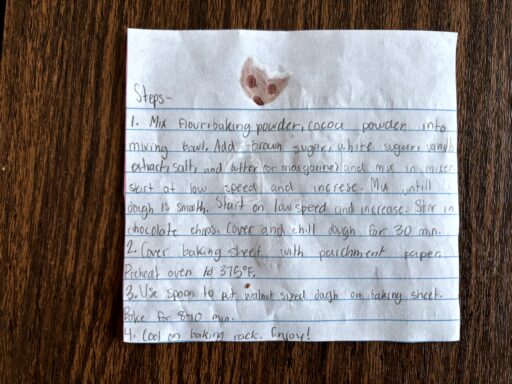 Steps-
1. Mix flour, baking powder, cocoa powder into
mixing bowl. Add brown sugar, white sugar, vanilla
extract, salt, and butter (or margarine) and mix in mixer
start at low speed and increse. Mix untill
dough is smoth. Start on low speed and increase. Stir in
chocolate chips. Cover and chill dough for 30 min.
2. Cover baking sheet with parchment paper.
Preheat oven to 375°F.
3. Use spoon to put walnut sized dough on baking sheet.
Bake for 8-10 min.
4. Cool on baking rack. Enjoy!